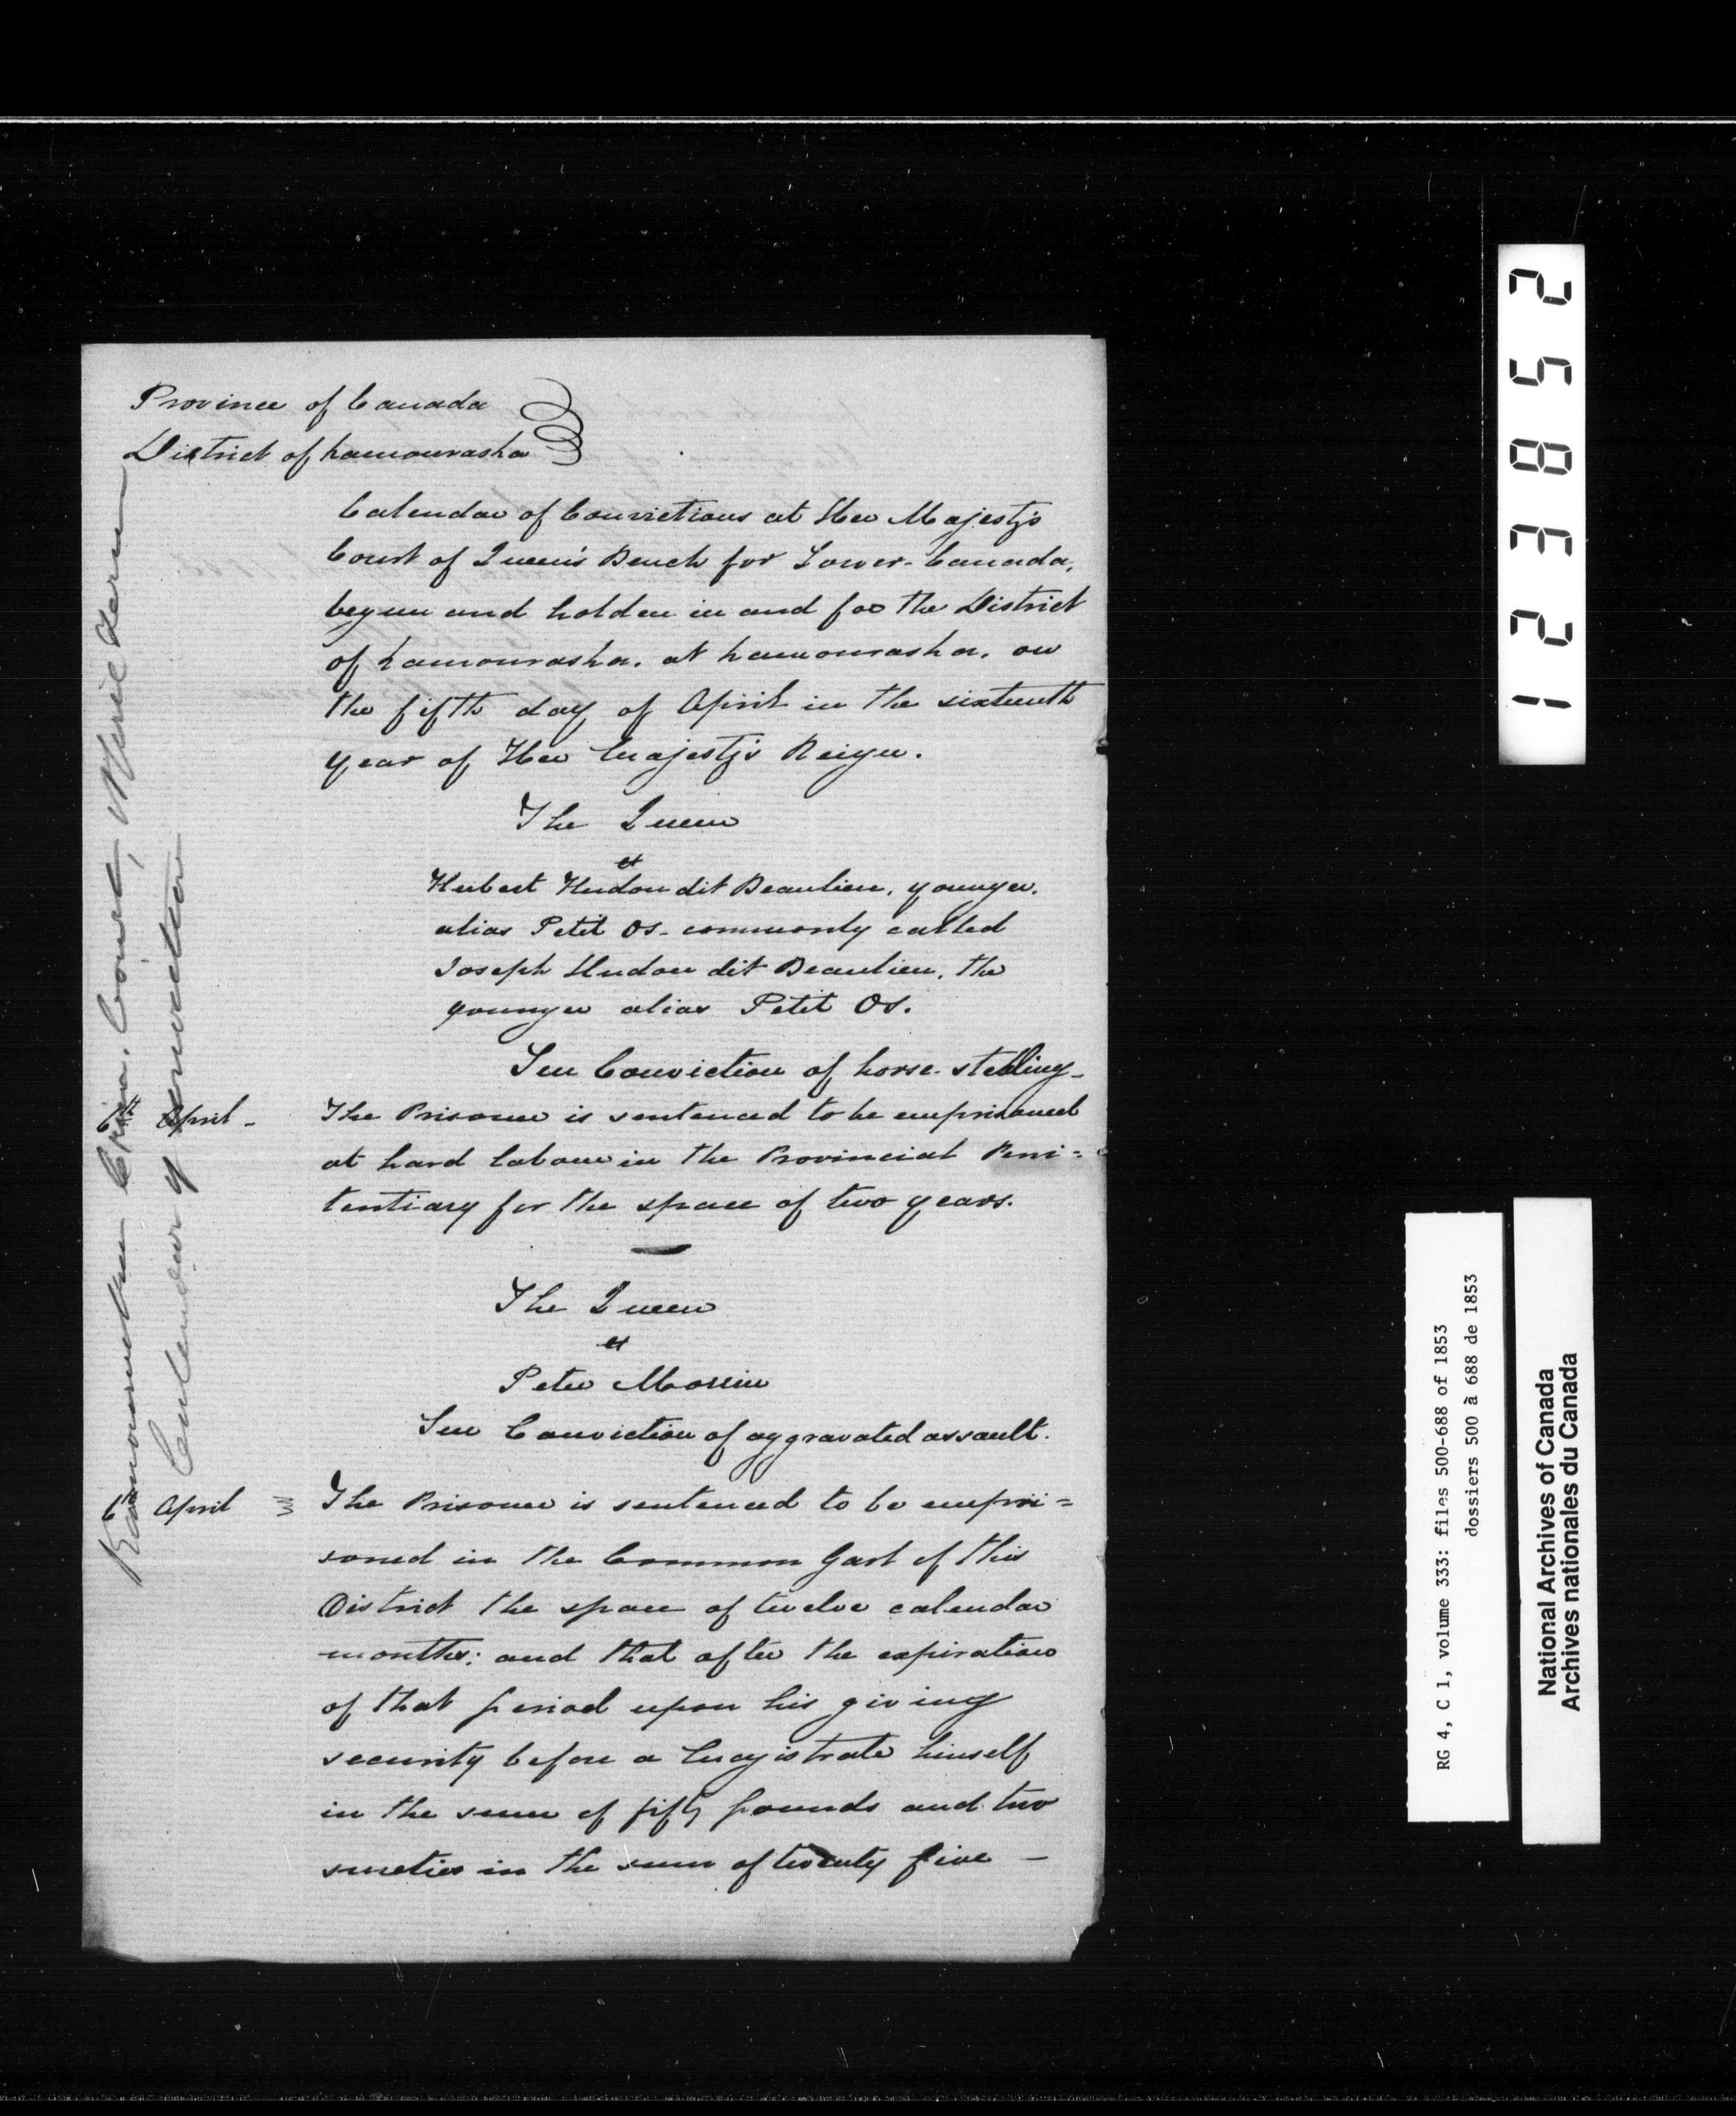 Province of Canada
District of Kamouraska
Calendar of Convictions at Her Majesty's
Court of Queen's Bench for Lower-Canada,
begun and holden in and for the District
of Kamouraska, at Kamouraska, on
the fifth day of April in the sixteenth
year of Her Majesty's Reign.
The Queen
Hubert Hudon dit Beaulieu, younger,
alias Petit Os- commonly called
Joseph Hudon dit Beaulieu, the
younger alias Petit Os.
Conviction of horse-stealing-
6th April - The Prisoner is sentenced to be emprisoned
at hard labour in the Provincial Peni=
tentiary for the space of two years.
The Queen
Peter Morrin
Conviction of aggravated assault.
6th April The Prisoner is sentenced to be empri=
soned in the Common Gaol of this
District the space of twelve calendar
months; and that after the expiration
of that period upon his giving
security before a Magistrate himself
in the sum of fifty pounds and two
sureties in the sum of twenty five -
Kamouraska Crim. Court,
Calendar of conviction
123852
RG 4, C 1, volume 333: files 500-688 of 1853
dossiers 500 à 688 de 1853
National Archives of Canada
Archives nationales du Canada